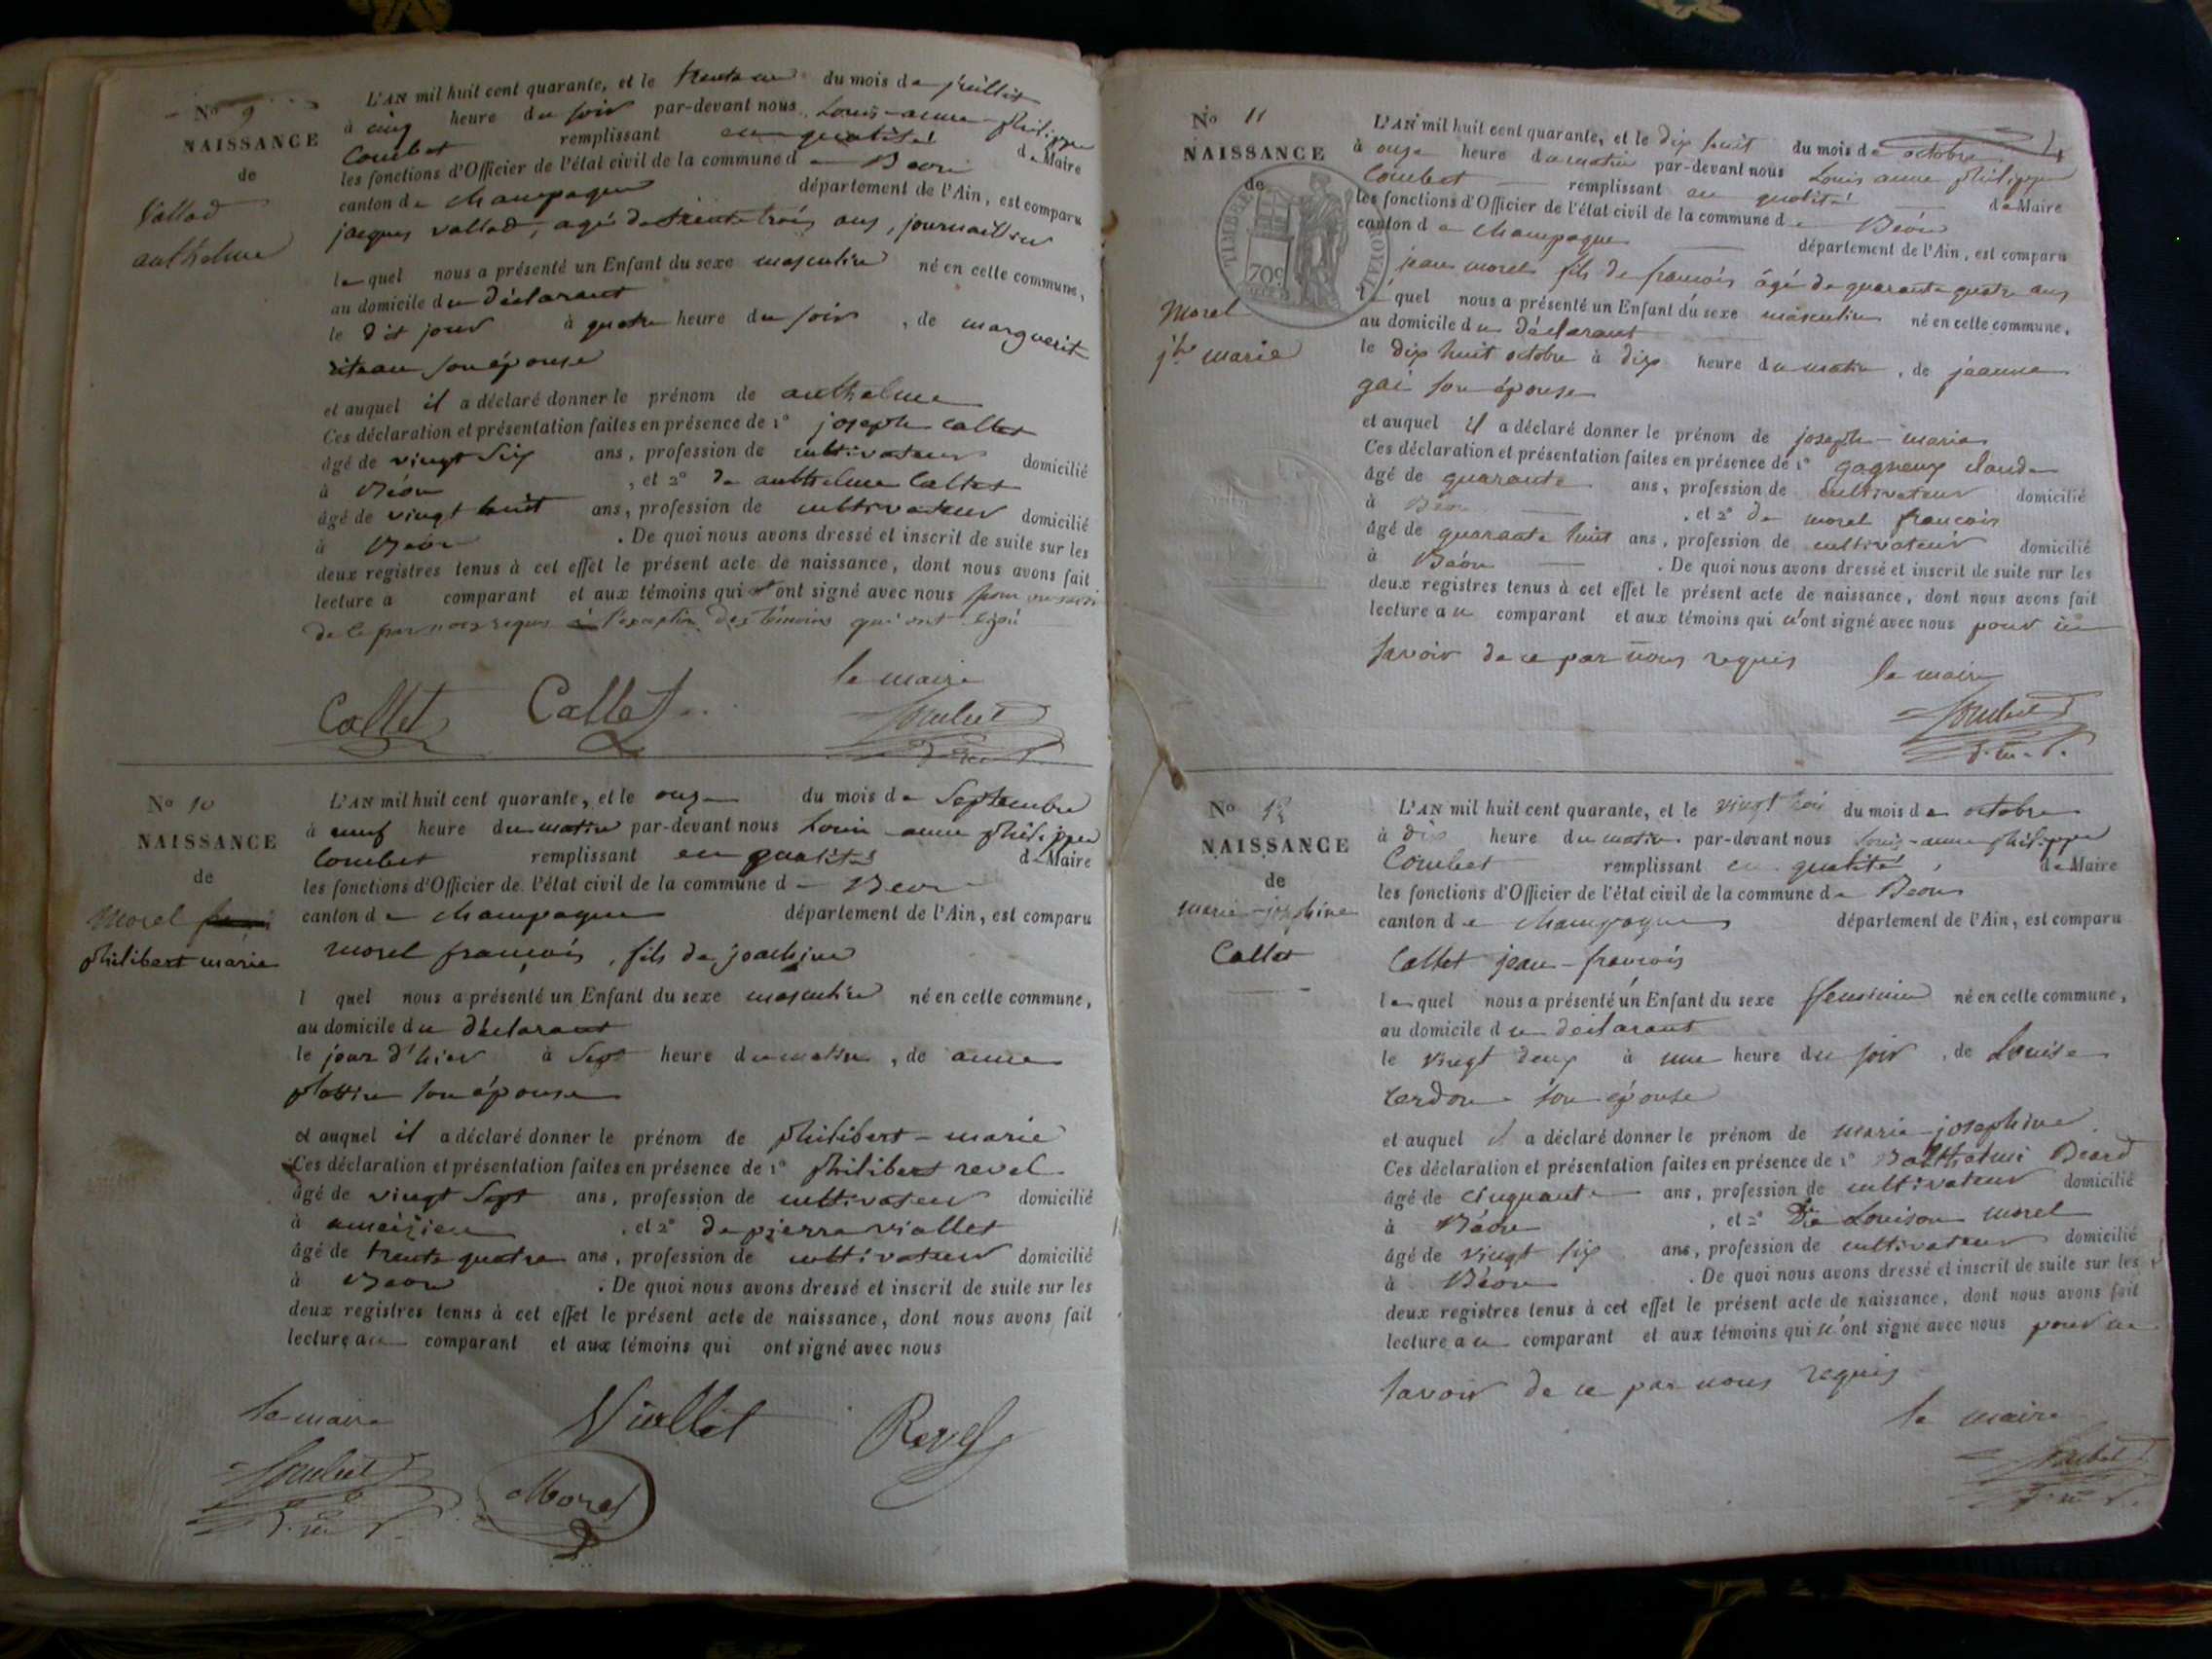 No 9
NAISSANCE
de
Vallod
anthelme
L'AN mil huit cent quarante, et le trente un du mois de juillet
à cinq heure du soir par-devant nous Louis-anne-philippe
Combet remplissant en qualité de Maire
les fonctions d'Officier de l'état civil de la commune de Beon
canton de champagne département de l'Ain, est comparu
jacques vallod, agé de trente trois ans, journallier
lequel nous a présenté un Enfant du sexe masculin né en cette commune,
au domicile du déclarant
le dit jour à quatre heure du soir, de marguerite
son épouse
et auquel il a déclaré donner le prénom de anthelme
Ces déclaration et présentation faites en présence de 1° joseph callet
âgé de vingt six ans, profession de cultivateur domicilié
à Béon, et 2° de anthelme Callet
âgé de vingt huit ans, profession de cultivateur domicilié
à Béon. De quoi nous avons dressé et inscrit de suite sur les
deux registres tenus à cet effet le présent acte de naissance, dont nous avons fait
lecture a comparant et aux témoins qui ont signé avec nous pour ne savoir
de ce par nous requis à l'exception des témoins qui ont signé
le maire
Callet Callet Combet
No 10
NAISSANCE
de
Morel
philibert marie
L'AN mil huit cent quarante, et le onze du mois de Septembre
à neuf heure du matin par-devant nous Louis anne philippe
Combet remplissant en qualité de Maire
les fonctions d'Officier de l'état civil de la commune de Beon
canton de champagne département de l'Ain, est comparu
morel françois, fils de joachim
l quel nous a présenté un Enfant du sexe masculin né en cette commune,
au domicile du déclarant
le jour d'hier à Sept heure du matin, de anne
plottin son épouse
et auquel il a déclaré donner le prénom de philibert-marie
Ces déclaration et présentation faites en présence de 1° philibert revel
âgé de vingt Sept ans, profession de cultivateur domicilié
à ameizieu, et 2° de pierre viallet
âgé de trente quatre ans, profession de cultivateur domicilié
à Beon. De quoi nous avons dressé et inscrit de suite sur les
deux registres tenus à cet effet le présent acte de naissance, dont nous avons fait
lecture au comparant et aux témoins qui ont signé avec nous
le maire Viallet Revel
Combet Morel
No 11
NAISSANCE
de
TIMBRE ROYAL
70c
Morel
jh marie
L'AN mil huit cent quarante, et le dix huit du mois de octobre
à onze heure du matin par-devant nous Louis anne philippe
Combet remplissant en qualité de Maire
les fonctions d'Officier de l'état civil de la commune de Béon
canton de champagne département de l'Ain, est comparu
jean morel fils de françois âgé de quarante quatre ans
l quel nous a présenté un Enfant du sexe masculin né en cette commune,
au domicile du déclarant
le dix huit octobre à dix heure du matin, de jeanne
gai son épouse
et auquel il a déclaré donner le prénom de joseph-marie
Ces déclaration et présentation faites en présence de 1° gagneux claude
âgé de quarante ans, profession de cultivateur domicilié
à Béon, et 2° de morel françois
âgé de quarante huit ans, profession de cultivateur domicilié
à Béon. De quoi nous avons dressé et inscrit de suite sur les
deux registres tenus à cet effet le présent acte de naissance, dont nous avons fait
lecture au comparant et aux témoins qui n'ont signé avec nous pour ne
savoir de ce par nous requis
le maire
Combet
No 12
NAISSANCE
de
marie-josephine
Callet
L'AN mil huit cent quarante, et le vingt trois du mois de octobre
à dix heure du matin par-devant nous Louis-anne philippe
Combet remplissant en qualité de Maire
les fonctions d'Officier de l'état civil de la commune de Béon
canton de champagne département de l'Ain, est comparu
Callet jean-françois
lequel nous a présenté un Enfant du sexe feminin né en cette commune,
au domicile du déclarant
le vingt deux à une heure du soir, de Louise
cardon son épouse
et auquel il a déclaré donner le prénom de marie-josephine
Ces déclaration et présentation faites en présence de 1° Beard
âgé de cinquante ans, profession de cultivateur domicilié
à Béon, et 2° De Louison morel
âgé de vingt six ans, profession de cultivateur domicilié
à Béon. De quoi nous avons dressé et inscrit de suite sur les
deux registres tenus à cet effet le présent acte de naissance, dont nous avons fait
lecture au comparant et aux témoins qui n'ont signé avec nous pour ne
savoir de ce par nous requis
le maire
Combet